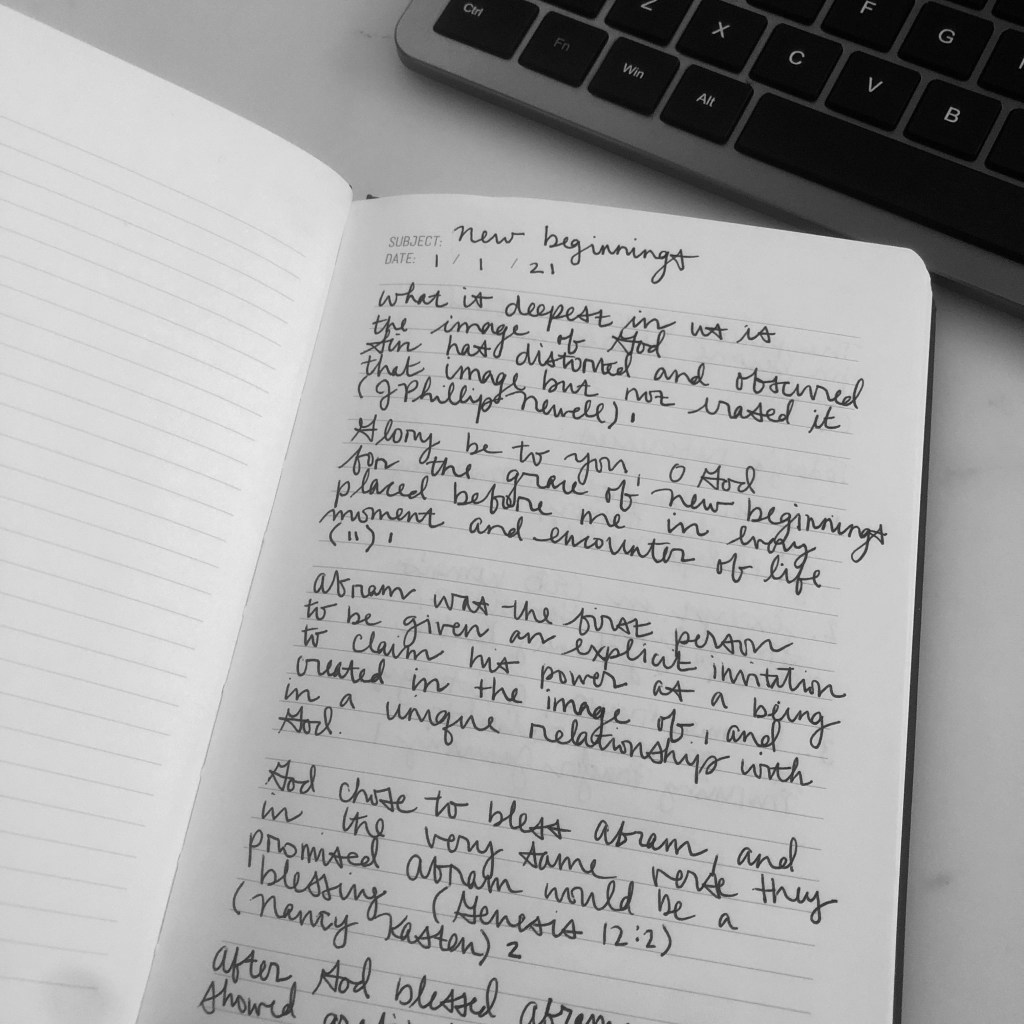 Ctrl
Fn
Win
Alt
Z
X
C
V
B
F
G
SUBJECT: new beginnings
DATE: 1 / 1 / 21
what is deepest in us is
the image of God
sin has distorted and obscured
that image but not erased it
(J Phillip Newell).
Glory be to you, O God
for the grace of new beginnings
placed before me in every
moment and encounter of life
(11).
abram was the first person
to be given an explicit invitation
to claim his power as a being
created in the image of, and
in a unique relationship with
God.
God chose to bless abram, and
in the very same verse they
promised abram would be a
blessing (Genesis 12:2)
(Nancy Kasten) 2
after God blessed
showed